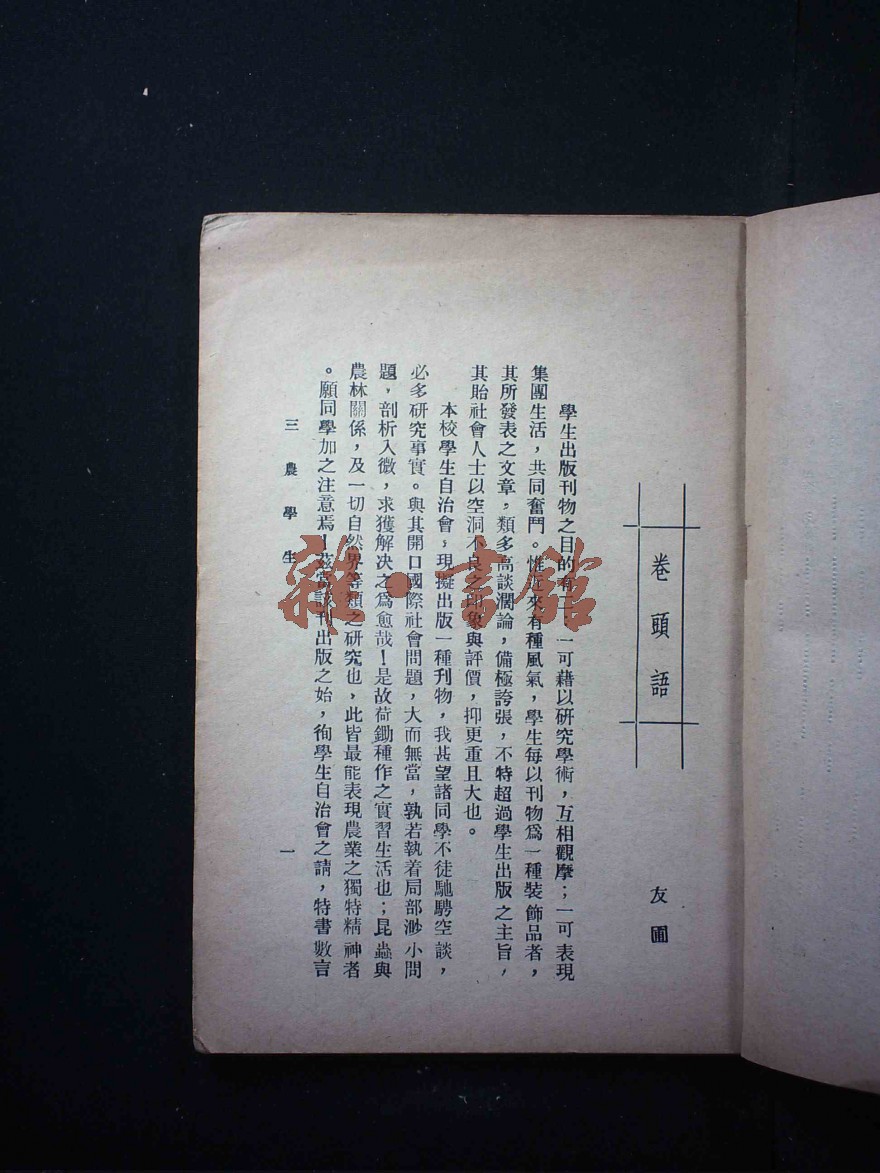 卷頭語
友圃
學生出版刊物之目的有二，一可藉以研究學術，互相觀摩；一可表現
集團生活，共同奮鬥。惟近來有種風氣，學生每以刊物爲一種裝飾品者，
其所發表之文章，類多高談濶論，備極誇張，不特超過學生出版之主旨，
其貽社會人士以空洞不良之印象與評價，抑更重且大也。
本校學生自治會，現擬出版一種刋物，我甚望諸同學不徒馳騁空談，
必多研究事實。與其開口國際社會問題，大而無當，孰若執着局部渺小問
題，剖析入微，求獲解决之爲愈哉！是故荷鋤種作之實習生活也；昆蟲與
農林關係，及一切自然界等類之研究也，此皆最能表現農業之獨特精神者
。願同學加之注意焉！茲當該刊出版之始，徇學生自治會之請，特書數言
三農學生
一
雜·書館